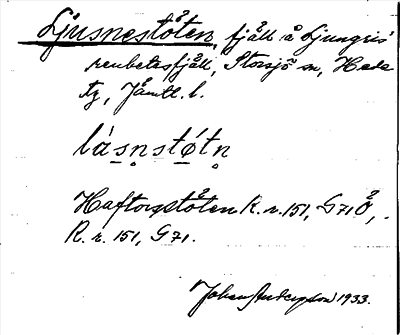 Ljusnestöten, fjäll å Ljungris'
renbetesfjäll, Storsjö sn, Heds
tg, Jämtl. l.
lásn̥stǿtn̥
Haftorsstöten R.r. 151, G71Ö,.
R.r. 151, G71.
Johan Anderson 1933.